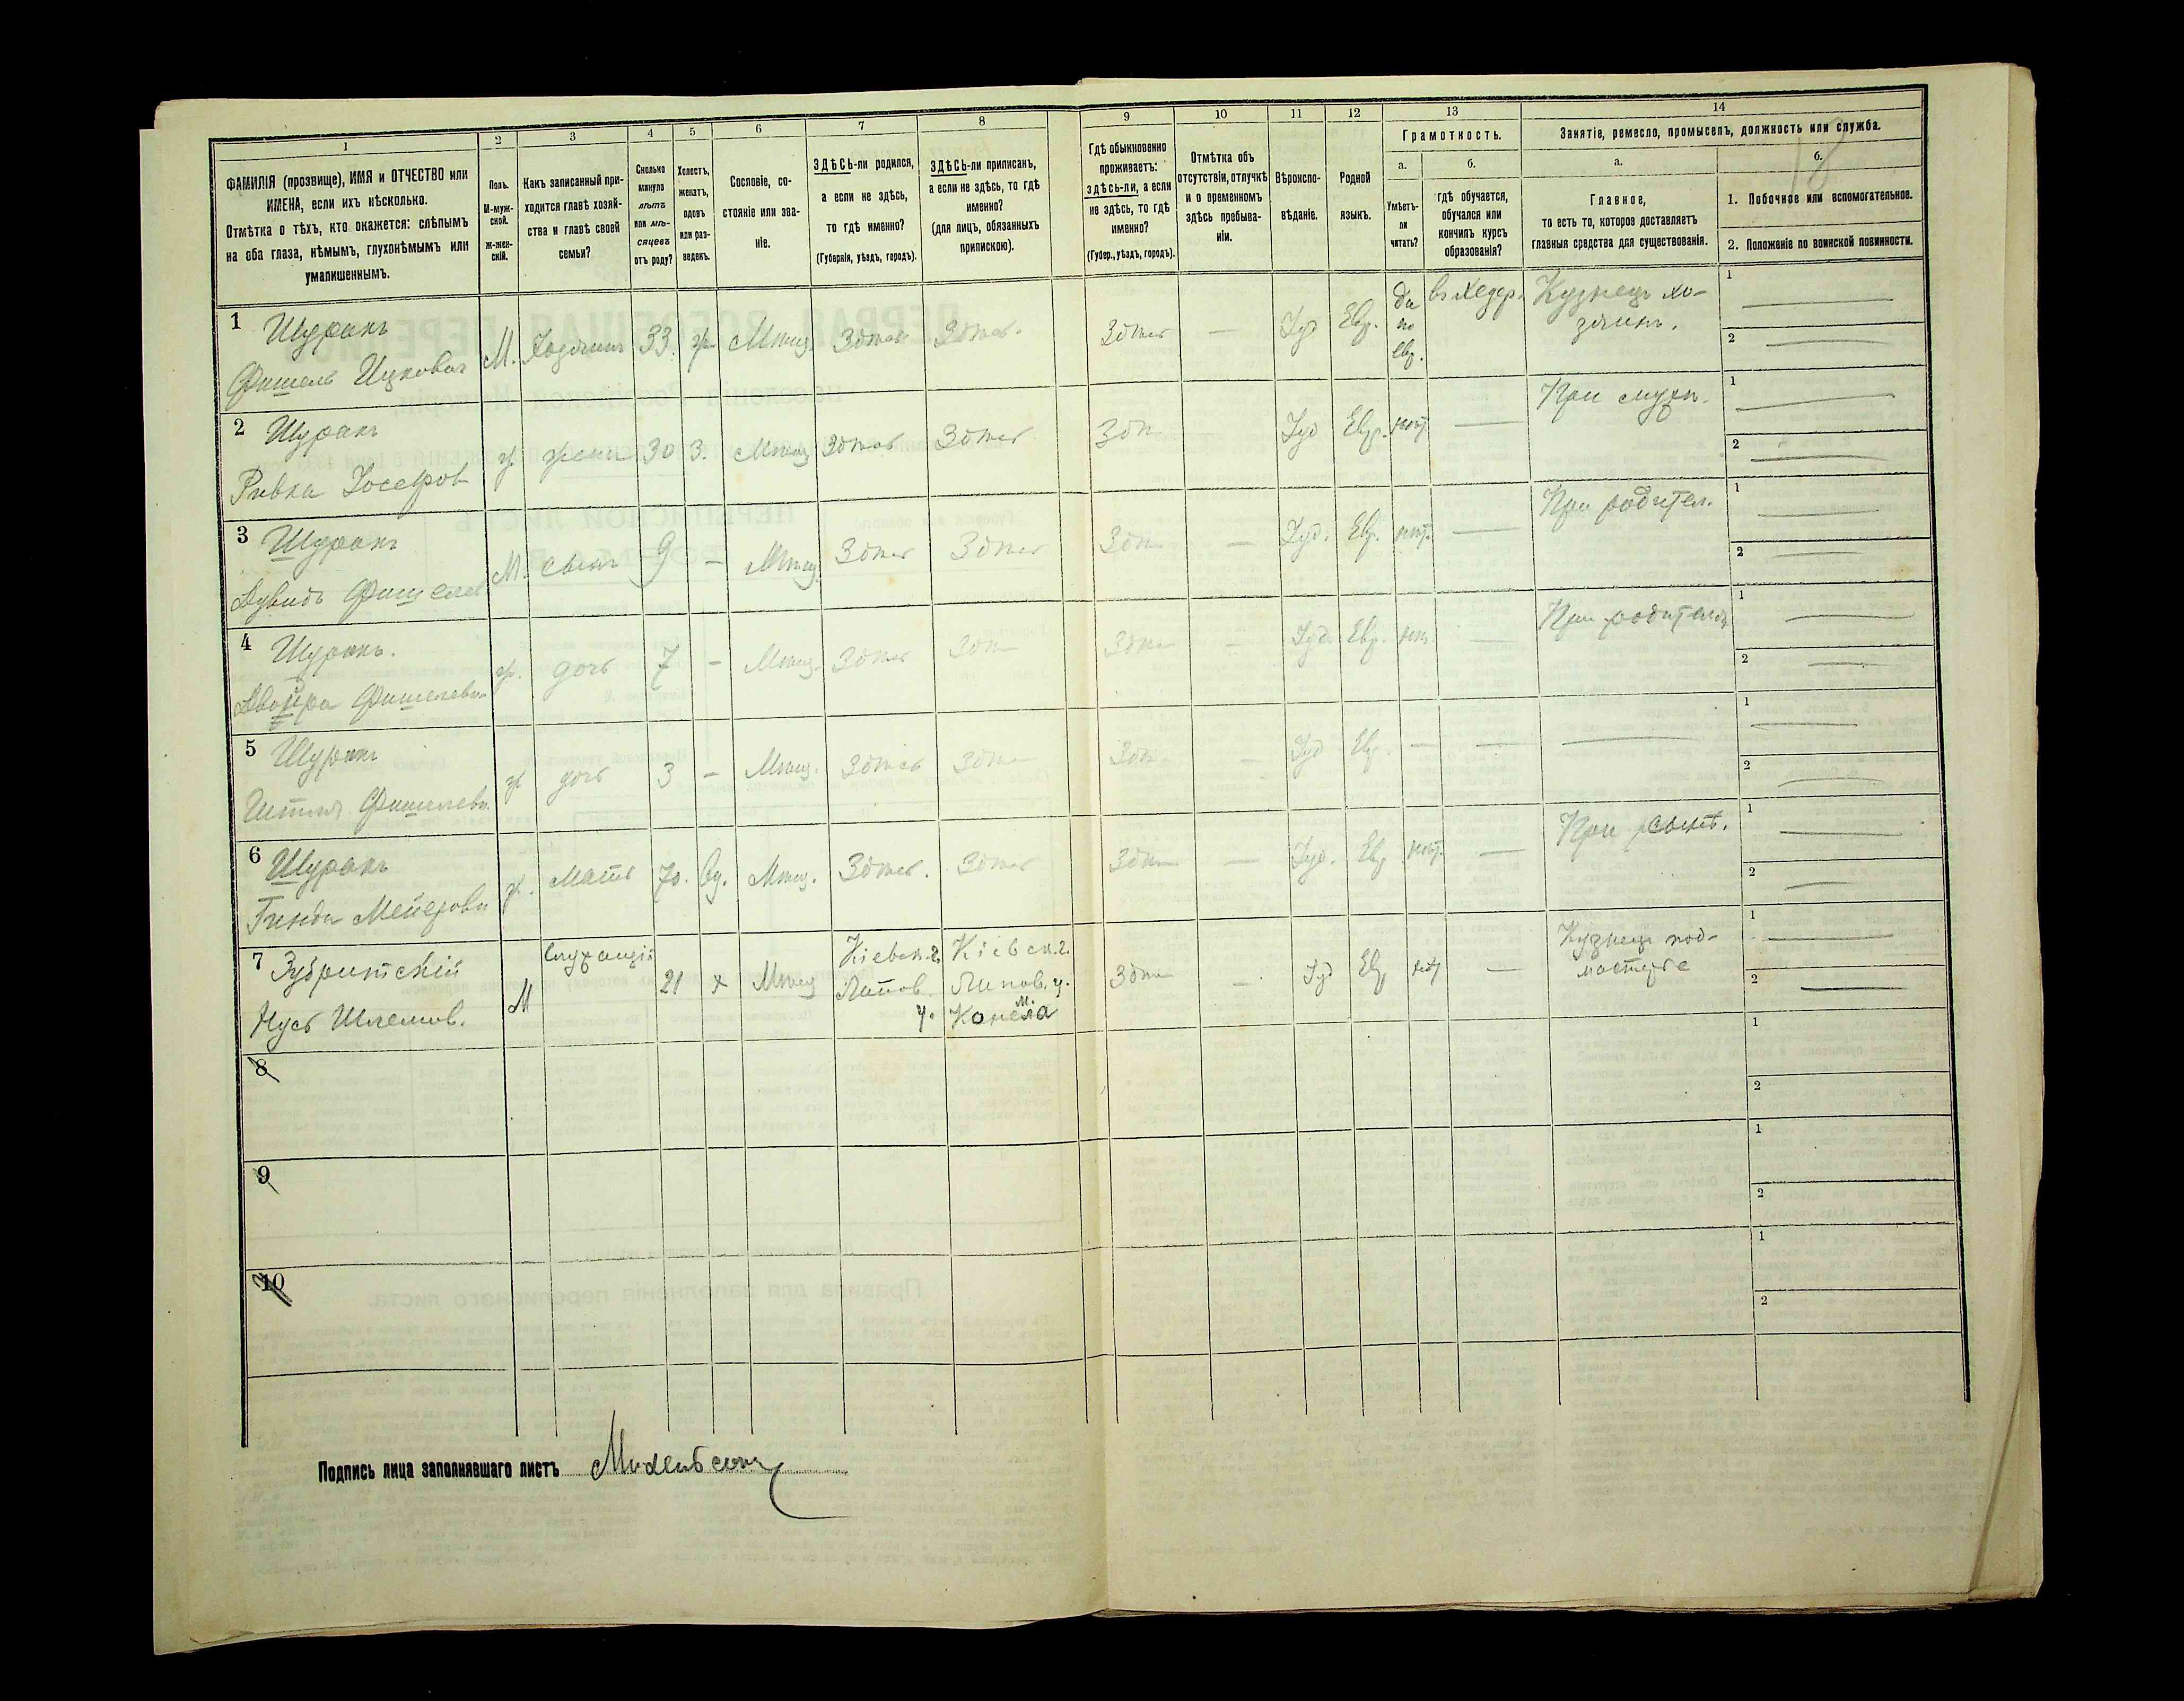 1 2 3 4 5 6 7 8 9 10 11 12 13 14
ФАМИЛІЯ (прозвище), ИМЯ и ОТЧЕСТВО или
ИМЕНА, если ихъ нѣсколько.
Отмѣтка о тѣхъ, кто окажется: слѣпымъ
на оба глаза, нѣмымъ, глухонѣмымъ или
умалишеннымъ.
Полъ.
М-муж-
ской.
Ж-жен-
скій.
Какъ записанный при-
ходится главѣ хозяй-
ства и главѣ своей
семьи?
Сколько
минуло
лѣтъ
или мѣ-
сяцевъ
отъ роду?
Холостъ,
женатъ,
вдовъ
или раз-
веденъ.
Сословіе, со-
стояніе или зва-
ніе.
ЗДѢСЬ-ли родился,
а если не здѣсь,
то гдѣ именно?
(Губернія, уѣздъ, городъ).
ЗДѢСЬ-ли приписанъ,
а если не здѣсь, то гдѣ
именно?
(для лицъ, обязанныхъ
припискою).
Гдѣ обыкновенно
проживаетъ:
здѣсь-ли, а если
не здѣсь, то гдѣ
именно?
(Губер., уѣздъ, городъ).
Отмѣтка объ
отсутствіи, отлучкѣ
и о временномъ
здѣсь пребыва-
ніи.
Вѣроиспо-
вѣданіе.
Родной
языкъ.
Грамотность.
а.
Умѣетъ-
ли
читать?
б.
гдѣ обучается,
обучался или
кончилъ курсъ
образованія?
Занятіе, ремесло, промыселъ, должность или служба.
а.
Главное,
то есть то, которое доставляетъ
главныя средства для существованія.
б.
18
1. Побочное или вспомогательное.
2. Положеніе по воинской повинности.
1 Шуракъ
Фишель Ицковъ М. Хозяинъ 33. ж. Мѣщ. Здѣсь Здѣсь. Здѣсь — Іуд Евр. да по евр. въ хедер. Кузнецъ хо-
зяинъ. 1 — 2 —
2 Шуракъ
Ривка Іосефов ж жена 30 З. Мѣщ Здѣсь Здѣсь Здѣ — Іуд Евр. нѣт — При мужѣ. 1 — 2 —
3 Шуракъ
Дувидъ Фишелев М. сынъ 9 — Мѣщ. Здѣсь Здѣсь Здѣ — Іуд. Евр. нѣт. — При родител. 1 — 2 —
4 Шуракъ.
Двойра Фишелевн ж. дочь 7 — Мѣщ. Здѣсь Здѣ Здѣ — Іуд. Евр. нѣт. — При родителяхъ 1 — 2 —
5 Шуракъ
Фишелевн. ж дочь 3 — Мѣщ. Здѣсь Здѣ Здѣ — Іуд Евр. — — — 1 — 2 —
6 Шуракъ
Гинда Мейерова ж. Мать 70. вд. Мѣщ. Здѣсь. Здѣсь Здѣ — Іуд. Евр нѣт. — При сынѣ. 1 — 2 —
7 Зубритскій
Нусь Шлемов. М Служащій 21 х Мѣщ Кіевск. г.
Липов.
у. Кіевск. г.
Липов. у.
м. Конела Здѣ — Іуд Евр нѣт — Кузнецъ под-
мастерье 1 — 2 —
8 1 2
9 1 2
10 1 2
Подпись лица заполнявшаго листъ Михельсонъ